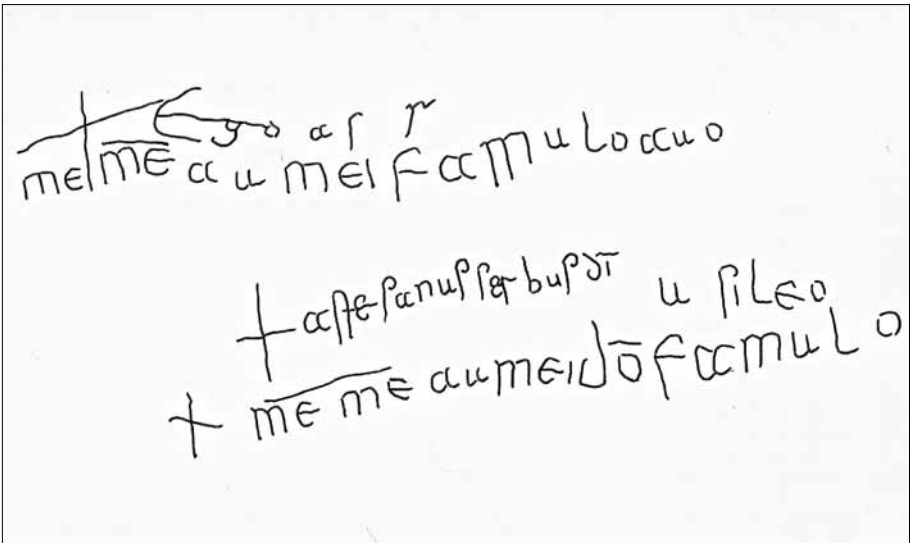 + Ego as r
mei m̅e̅ au mei famulo auo
+ astefanus serbus d̅i̅ u sileo
+ m̅e̅ m̅e̅ au mei do̅ famulo